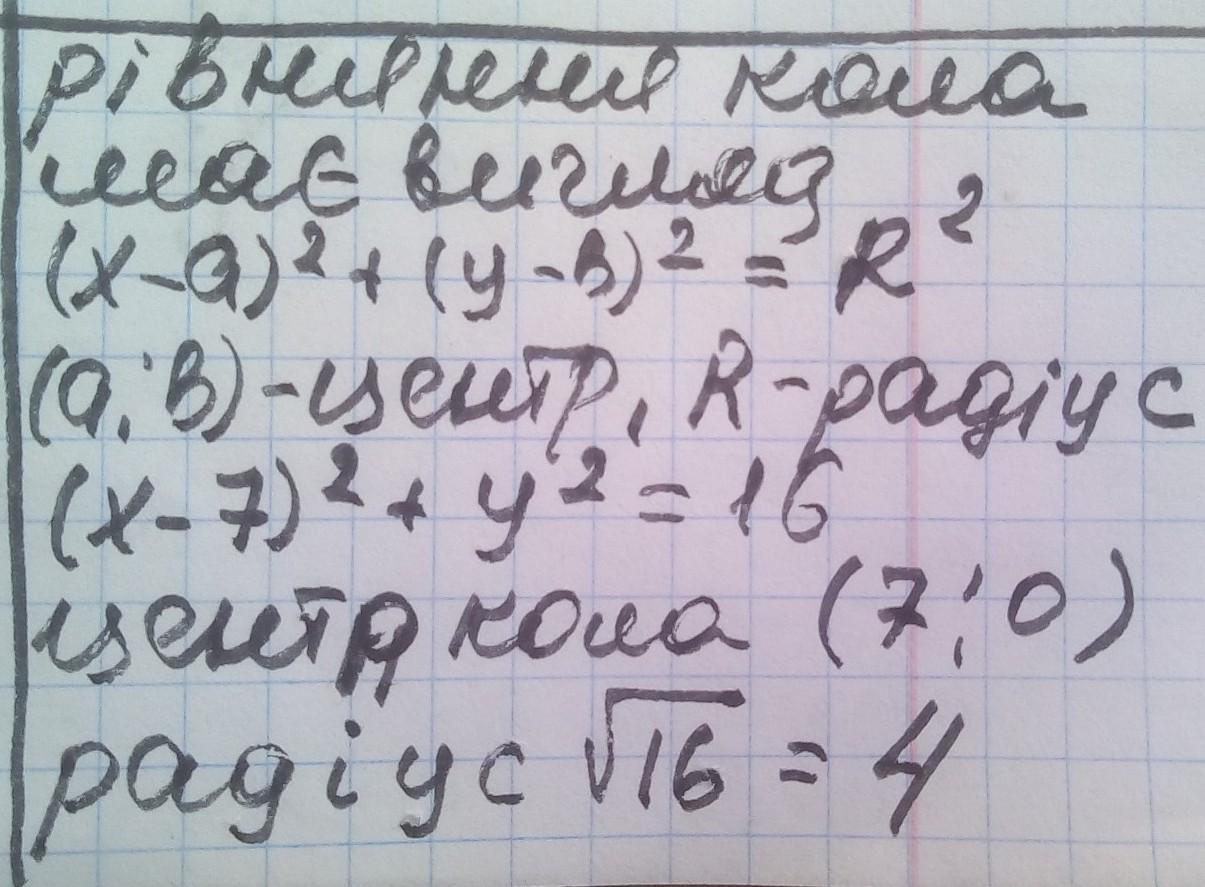 рівняння кола
має вигляд
(x-a)² + (y-b)² = R²
(a;b)-центр, R-радіус
(x-7)² + y² = 16
центр кола (7;0)
радіус √16 = 4